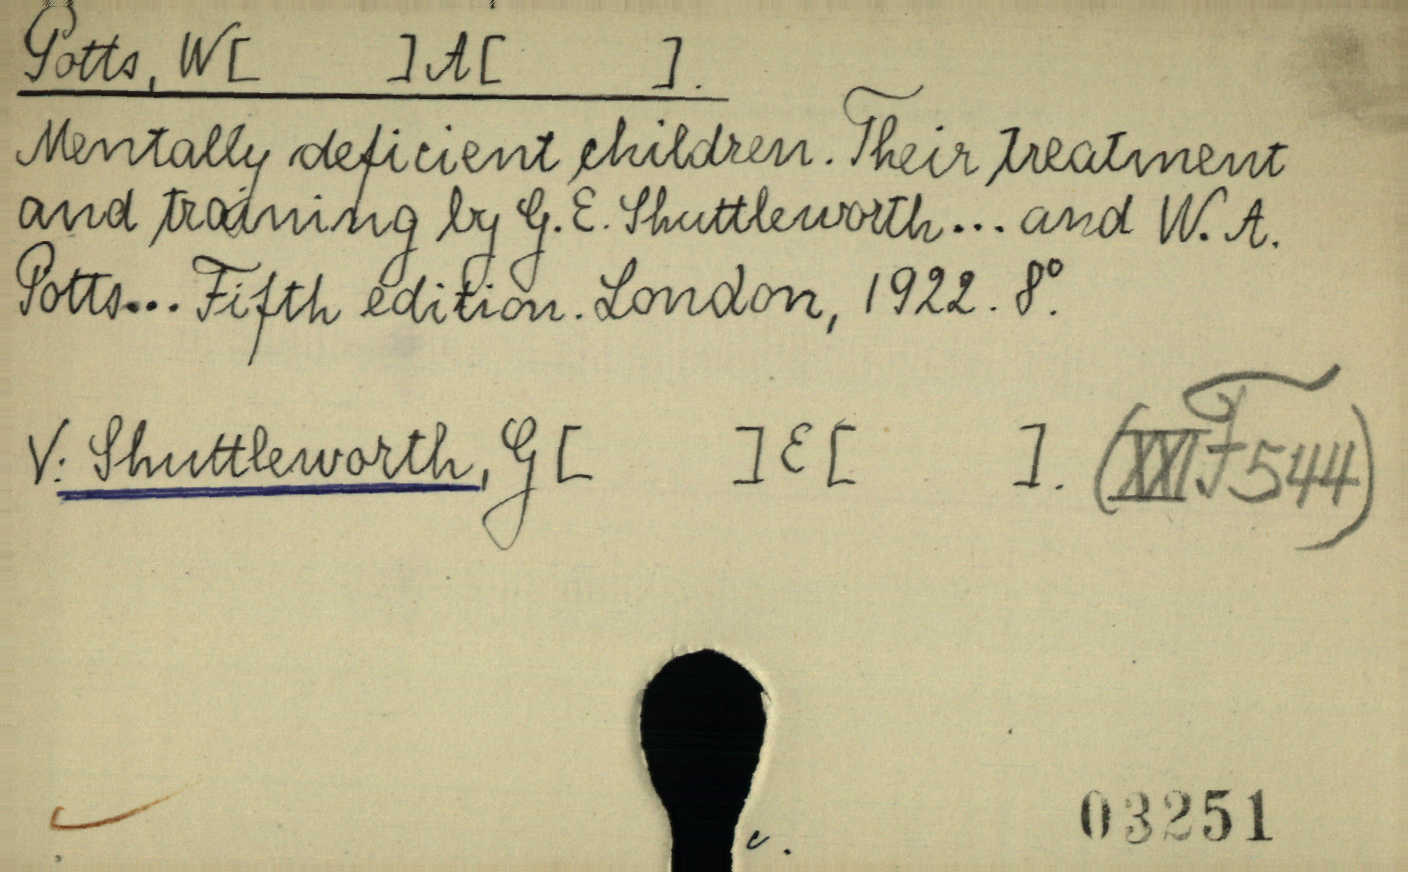 Potts, W[ ]A[ ].
Mentally deficient children. Their treatment
and training by G. E. Shuttleworth... and W. A.
Potts... Fifth edition. London, 1922. 8°.
V. Shuttleworth, G[ ]E[ ]. (XXI F 544)
c.
03251